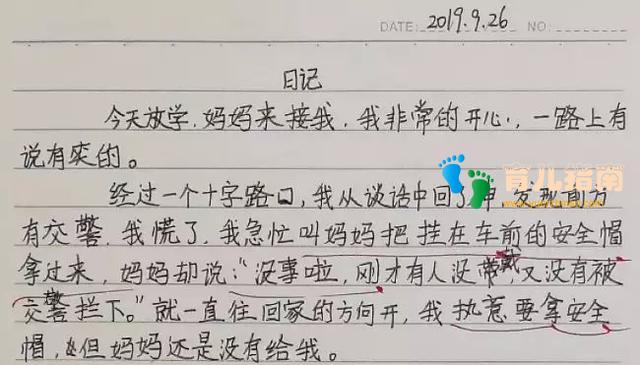 DATE: 2019.9.26 NO:
日记
今天放学,妈妈来接我,我非常的开心,一路上有
说有笑的。
经过一个十字路口,我从谈话中回了神,发现前方
有交警,我慌了,我急忙叫妈妈把挂在车前的安全帽
拿过来,妈妈却说:“没事啦,刚才有人没戴,又没有被
交警拦下。”就一直往回家的方向开,我执意要拿安全
帽,但妈妈还是没有给我。
育儿指南